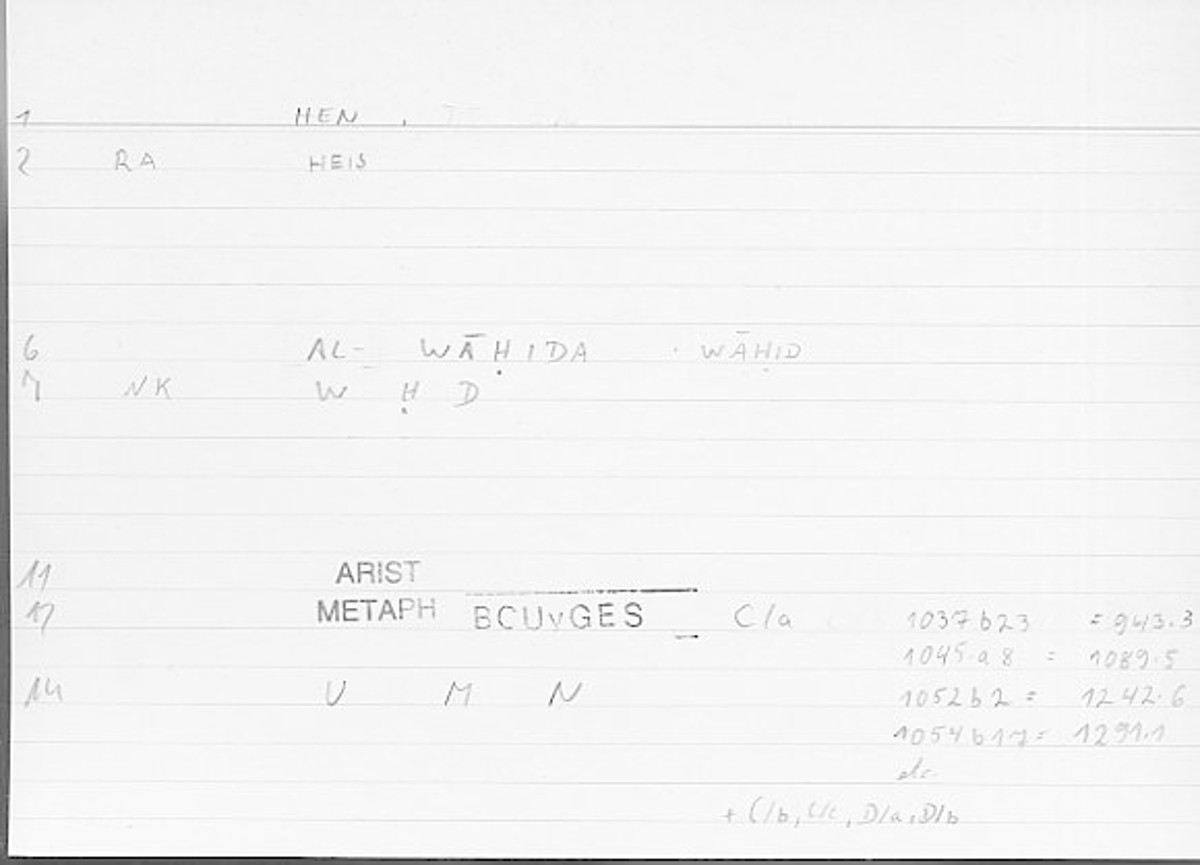 1 HEN ,
2 RA HEIS
6 AL- WĀḤIDA · WĀḤID
7 NK W Ḥ D
11 ARIST
12 METAPH BCUvGES C/a 1037b23 = 943.3
1045a8 = 1089.5
14 U M N 1052b2 = 1242.6
1054b17 = 1291.1
etc
+ C/b, C/c, D/a, D/b